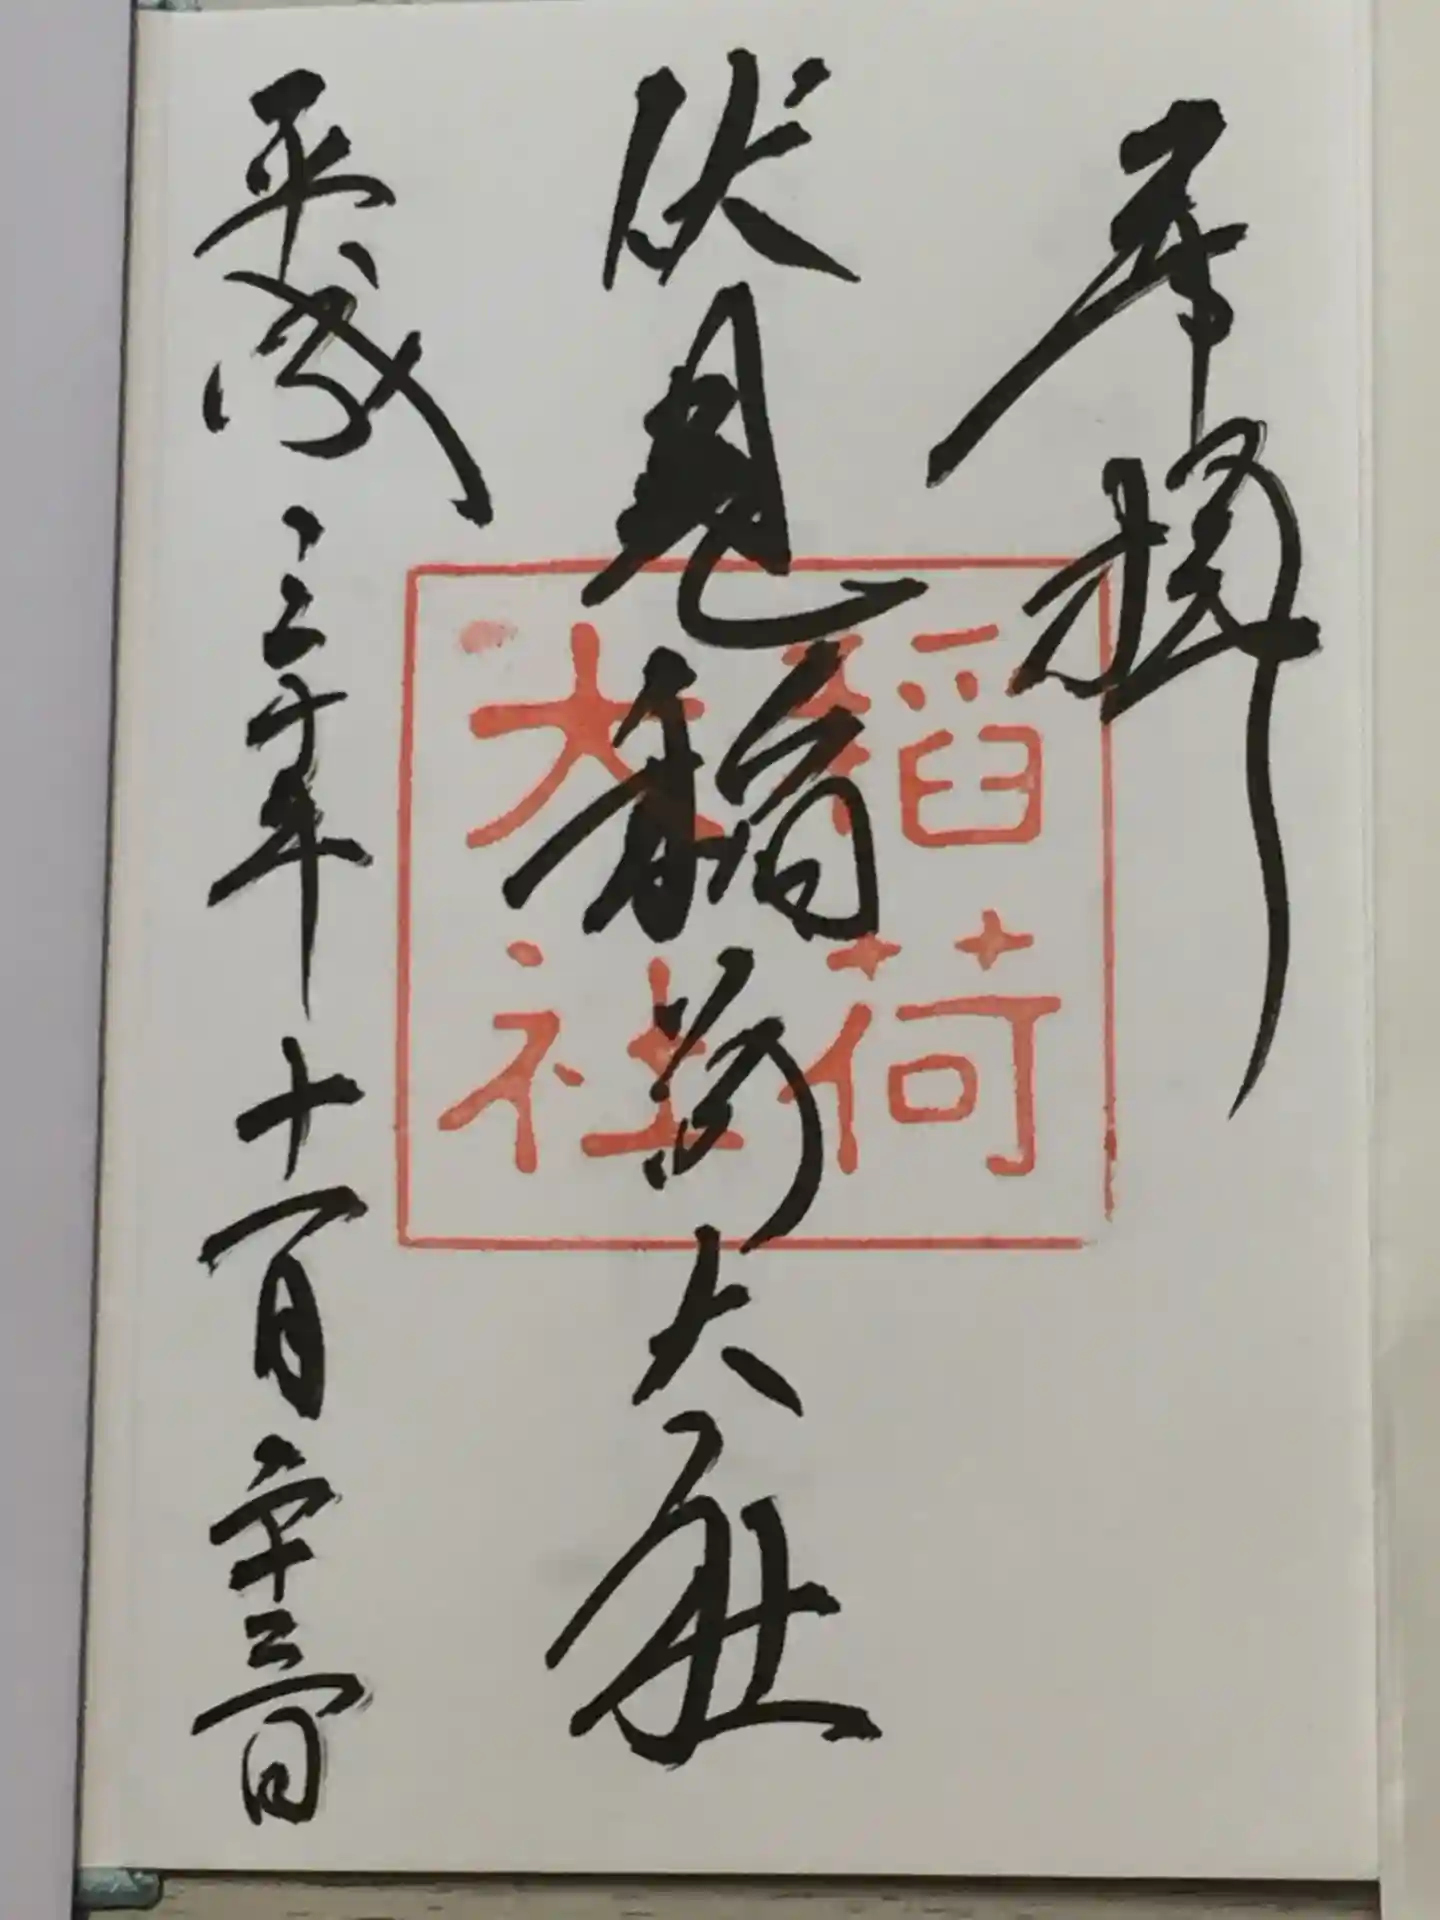 奉拝
伏見稲荷大社
平成三十年十一月二十三日
稻荷
大社